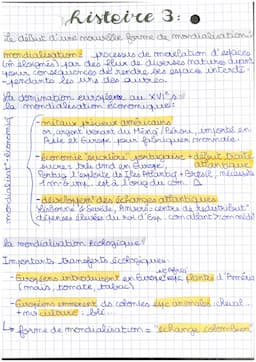 histoire 3:
Le début d'une nouvelle forme de mondialisation:
mondialisation: processus de mise en relation d'espaces
(+ éloignés) par des flux de diverses natures ayant
pour conséquences de rendre ses espaces interdé-
-pendants les uns des autres.
La domination européenne au XVIe s
la mondialisation économique:
mondialisat° économiq
- métaux précieux américains
or, argent venant du Méxiq/Pérou, importé en
et Europe pour fabriquer monnaie.
- économie "sucrière" portugaise + début traite
sucre: très dmd en Europe. atlantique
Portug. l'exploite ds îles Atlantiq + Brésil, nécessite
+ m-œuvre. est à l'orig du com.
- développemt des échanges atlantiques
Lisbonne & Séville, Anvers = centre de redistribut°
dépenses élevées du roi d'Esp.
la mondialisation écologique
Importants transferts écologiques:
- Européens introduisent en Europe plantes d'Amériq
(maïs, tomate, tabac)
- Européens amènent ds colonies animales: cheval
+ culture: blé
↳ forme de mondialisation = "échange colombien"